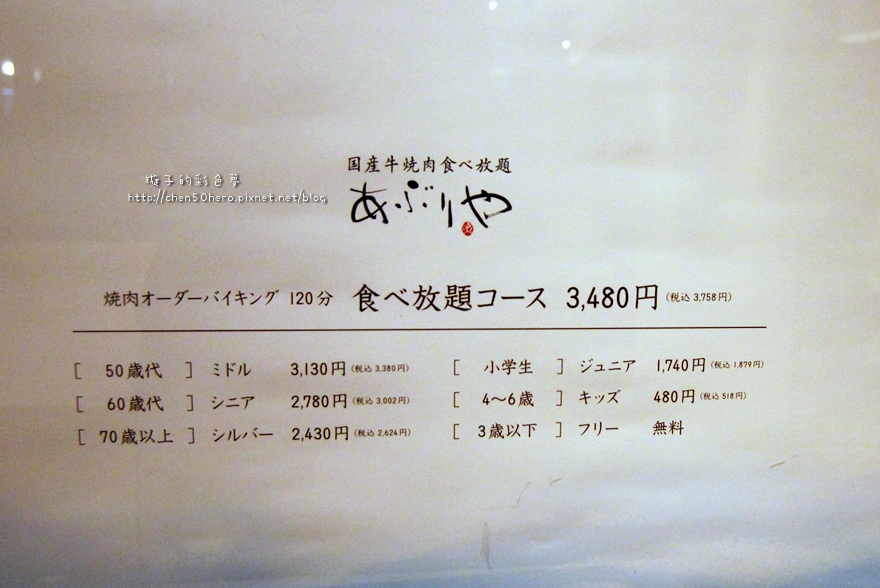 国産牛焼肉食べ放題
あぶりや
璇子的彩色夢
http://chen50hero.pixnet.net/blog
焼肉オーダーバイキング 120分 食べ放題コース 3,480円(税込 3,758円)
[ 50歳代 ] ミドル 3,130円(税込 3,380円)
[ 60歳代 ] シニア 2,780円(税込 3,002円)
[ 70歳以上 ] シルバー 2,430円(税込 2,624円)
[ 小学生 ] ジュニア 1,740円(税込 1,879円)
[ 4〜6歳 ] キッズ 480円(税込 518円)
[ 3歳以下 ] フリー 無料